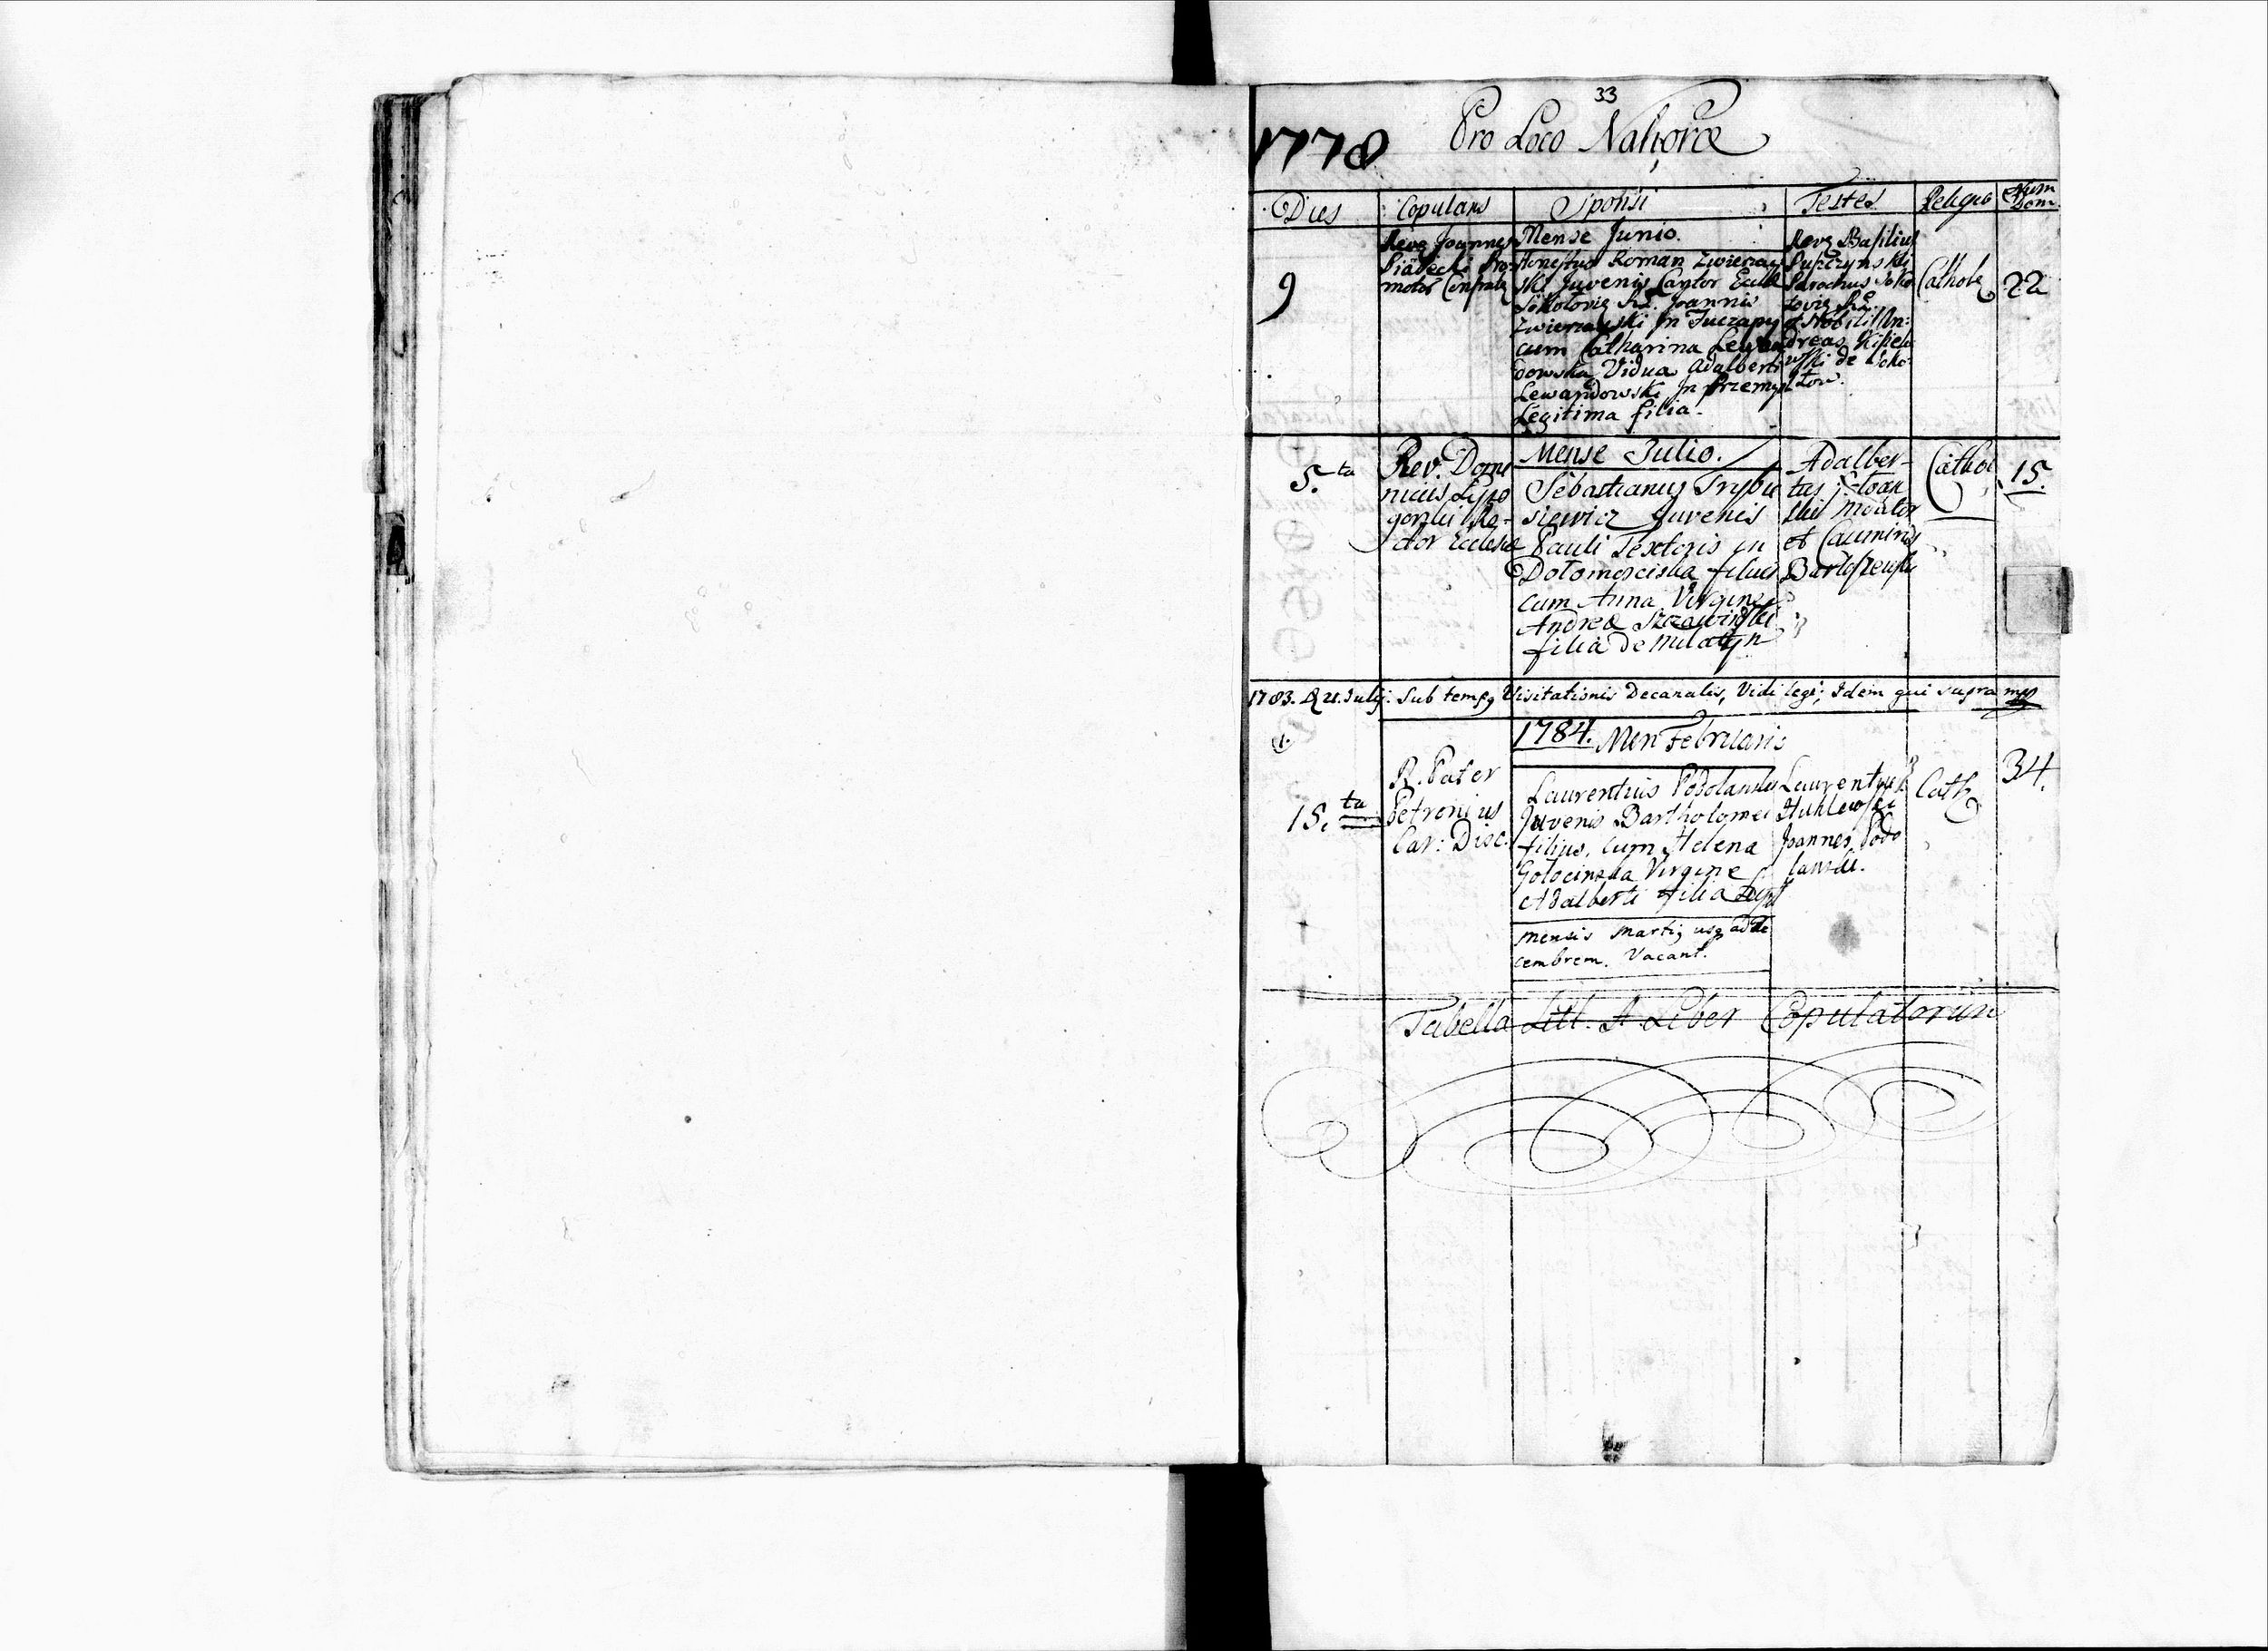 33
1778 Pro Loco Nahorce
Dies Copulans Sponsi Testes Religio Num Dom
9
Revs Joannes
Piasecki Pro-
motor Confrat
Mense Junio.
Honestus Roman Zwierzaw
ski Juvenis Cantor Eccle
Joannis
Zwierzawski In Tuczapy
cum Catharina Lewan
dowska Vidua Adalberti
Lewandowski In Przemysl
Legitima filia.
Revs Basilius
Parochus Soko
lovie
et Nobilis An:
dreas
wski de Soko
low.
Cathol
22
5.ta
Rev. Domi
nicus Lipo
gorski Re-
ctor Ecclesiæ
Mense Julio.
Sebastianus Trybu
siewicz Juvenis
Pauli Textoris in
Dolomosciska filius
cum Anna Virgine
Andreæ
filia de Milatyn
Adalber-
tus
ski Molitor
et Casimirus
Bartoszewski
Cathol
15.
1783. D 21. Julij. Sub temp Visitationis Decanalis, Vidi legi; Idem qui supra mp
1784. Men Februaris
15.ta
R. Pater
Petronius
Car: Disc.
Laurentius Podolanski
Juvenis Bartholomei
filius, cum Helena
Golocinska Virgine
Adalberti filia
Laurentius
Joannes Podo
lanski.
Cath
34.
Mensis Martij usq ad De
cembrem. Vacant.
Tabella Litt. A. Liber Copulatorum